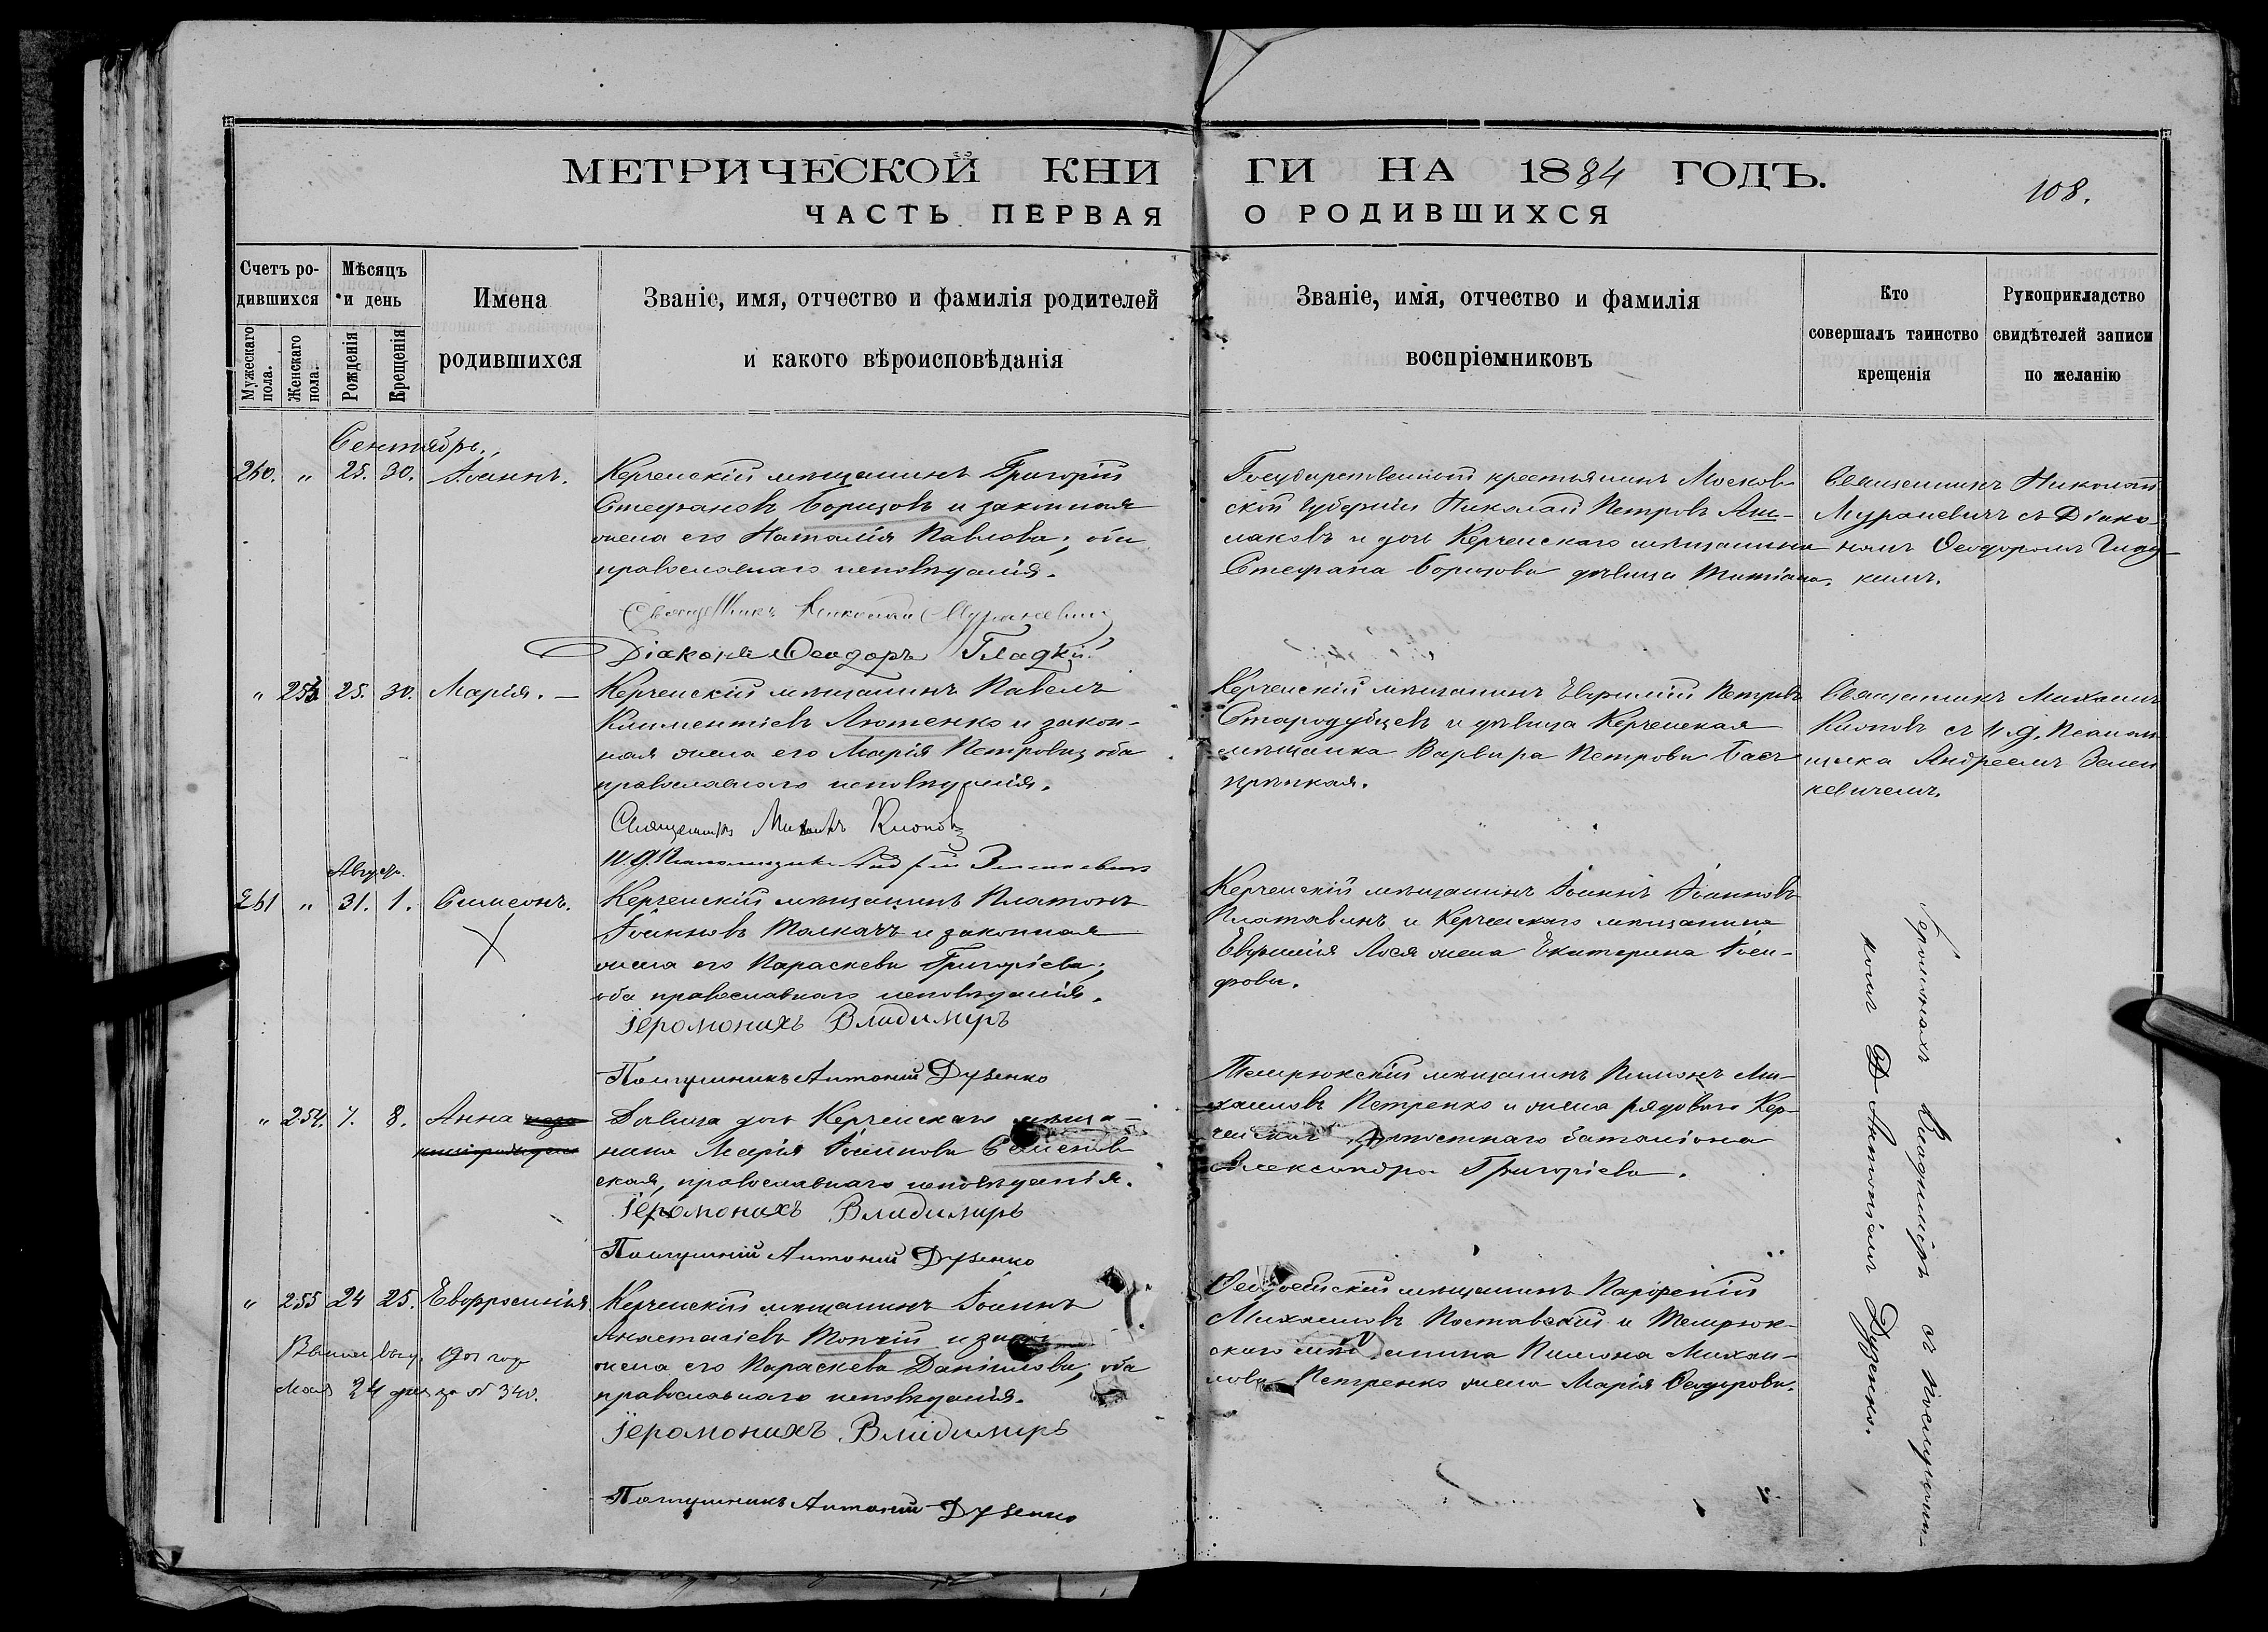 МЕТРИЧЕСКОЙ КНИГИ НА 1884 ГОДЪ.
108.
ЧАСТЬ ПЕРВАЯ О РОДИВШИХСЯ
Счетъ родившихся
Мужескаго пола.
Женскаго пола.
Мѣсяцъ и день
Рожденія
Крещенія
Имена
родившихся
Званіе, имя, отчество и фамилія родителей
и какого вѣроисповѣданія
Званіе, имя, отчество и фамилія
воспріемниковъ
Кто
совершалъ таинство
крещенія
Рукоприкладство
свидѣтелей записи
по желанію
Сентябрь.
260. " 25. 30. Іоаннъ.
Керченскій мѣщанинъ Григорій
Стефановъ Борисовъ и законная
жена его Наталія Павлова; оба
православнаго исповѣданія.
Священникъ Николай Мураневичъ
Діаконъ Ѳеодоръ Гладкій
Государственный крестьянинъ Москов-
ской Губерніи Николай Петровъ
лаковъ и дочь Керченскаго мѣщанина
Стефана Борисова дѣвица Татіана.
Священникъ Николай
Мураневичъ съ Діако-
номъ Ѳеодоромъ Глад-
кимъ.
" 253 25. 30. Марія. —
Керченскій мѣщанинъ Павелъ
Климентіевъ Лютенко и закон-
ная жена его Марія Петрова; оба
православнаго исповѣданія.
Священникъ Михаилъ Клоповъ
И. д. Псаломщика Андрей
Керченскій мѣщанинъ Евфимій Петровъ
Стародубцевъ и дѣвица Керченская
мѣщанка Варвара Петрова
Священникъ Михаилъ
Клоповъ съ И. д. Псалом-
щика Андреемъ Зелен
кевичемъ.
Август.
261 " 31. 1. Симеонъ.
Керченскій мѣщанинъ Платонъ
Іоанновъ Толкачъ и законная
жена его Параскева Григоріева;
оба православнаго исповѣданія.
Іеромонахъ Владимиръ
Послушникъ Антоній Дузенко
Керченскій мѣщанинъ Іоаннъ Іоанновъ
Платавинъ и Керченскаго мѣщанина
Евфимія Лося жена Екатерина Іоси-
фова.
" 254. 7. 8. Анна
Дѣвица дочь Керченскаго мѣща-
нина Марія Іоаннова Семенов
ская, православнаго исповѣданія.
Іеромонахъ Владимиръ
Послушникъ Антоній Дузенко
Темрюкскій мѣщанинъ Пимонъ Ми-
хаиловъ Петренко и жена рядоваго Кер-
ченскаго крѣпостнаго баталіона
Александра Григоріева.
" 255 24 25. Евфросинія
Керченскій мѣщанинъ Іоаннъ
Анастасіевъ Топчій и законная
жена его Параскева Даніилова; оба
православнаго исповѣданія.
Іеромонахъ Владимиръ
Послушникъ Антоній Дузенко
1901 год
Мая 24 дня за № 340.
Ѳеодосійскій мѣщанинъ Парфеній
Михаиловъ Поставскій и Темрюк-
скаго мѣщанина Пимона Михаи-
лова Петренко жена Марія Ѳеодорова.
Іеромонахъ Владиміръ съ послушни-
комъ Антоніемъ Дузенко.